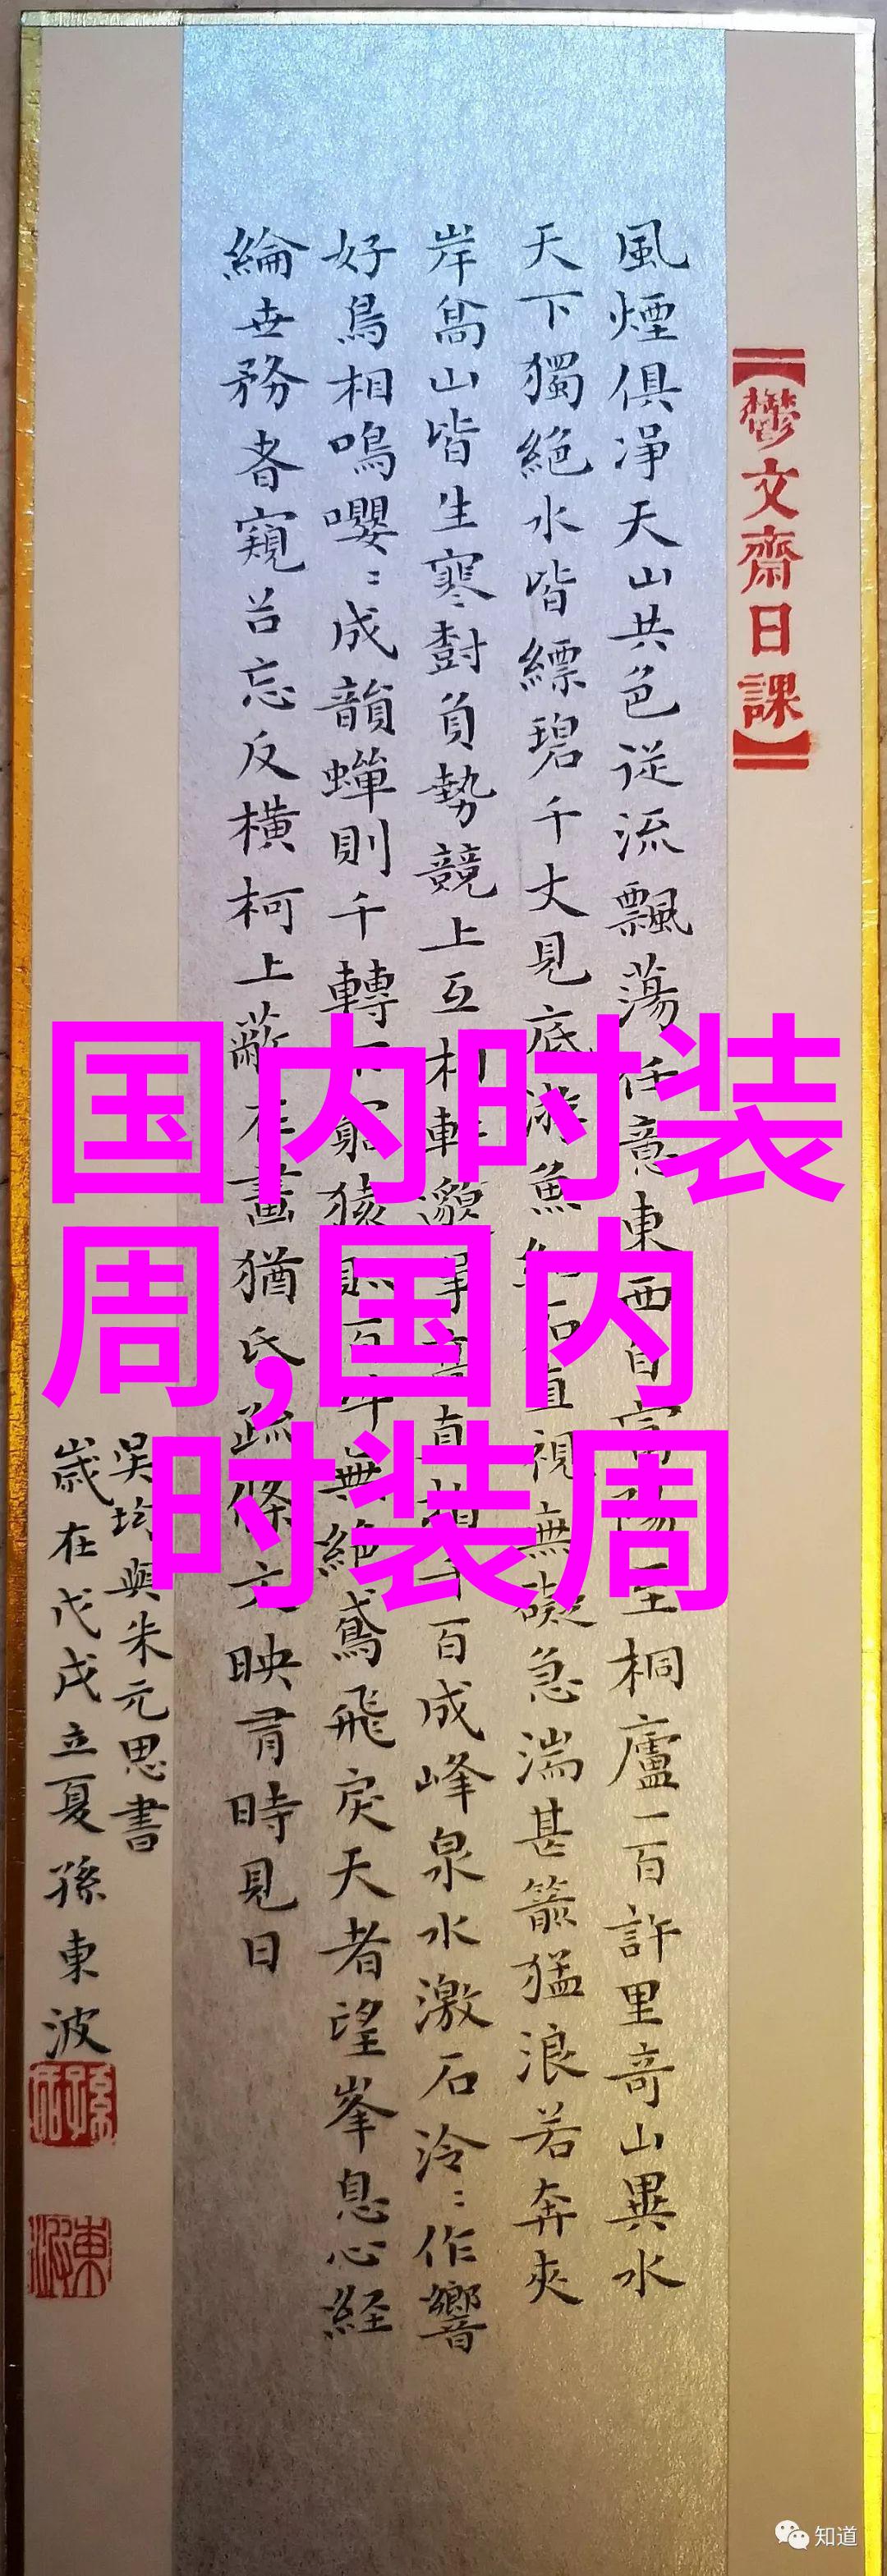 【鬱文齋日課】
風煙俱淨天山共色從流飄蕩任意東西自富陽至桐廬一百許里奇山異水
天下獨絕水皆縹碧千丈見底游魚細石直視無礙急湍甚箭猛浪若奔夾
岸高山皆生寒樹負勢競上互相軒邈爭高直指千百成峰泉水激石泠〻作響
好鳥相鳴嚶〻成韻蟬則千轉不窮猿則百叫無絕鳶飛戾天者望峯息心経
綸世務者窺谷忘反橫柯上蔽在晝猶昏疏條交映有時見日
吳均與朱元思書
歲在戊戌立夏孫東波
国内时装
周,国内
时装周
知道